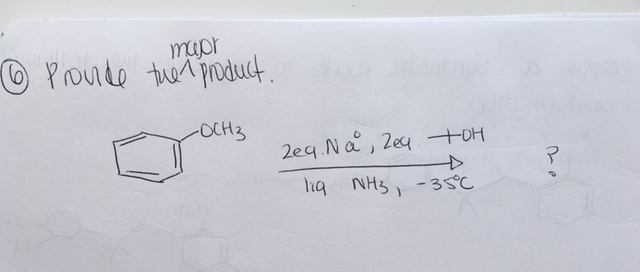 ⑥ Provide the major product.
OCH3
2eq. Na°, 2eq. OH
liq NH3, -35°C
?